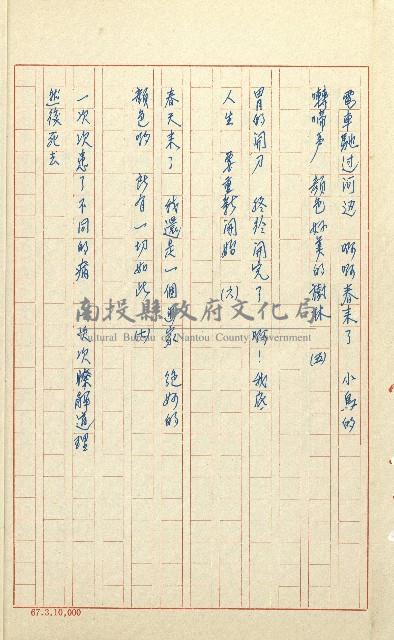 電車馳过河边 啊啊春来了 小鳥的
囀啼声 顏色好美的樹林 (五)
胃的開刀 終於開完了 啊！我底
人生 要重新開始 (六)
春天来了 我還是一個画家 絶妙的
顏色喲 所有一切如此 (七)
一次次患了不同的病 次次瞭解道理
然後死去
南投縣政府文化局
Cultural Bureau of Nantou County Government
67.3.10,000